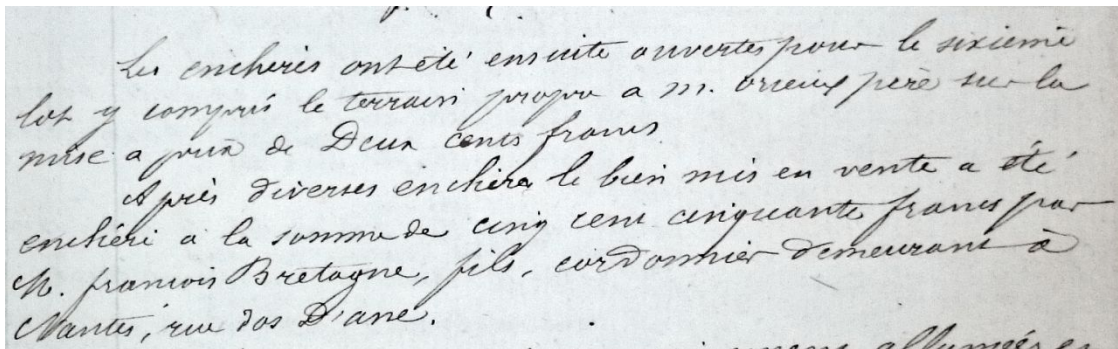 Les enchères ont été ensuite ouvertes pour le sixième
lot y compris le terrain propre a M. orieux père sur la
mise a prix de Deux cents francs
Après diverses enchères le bien mis en vente a été
enchéri a la somme de cinq cent cinquante francs par
M. françois Bretagne, fils, cordonnier demeurant à
Nantes, rue dos D'ane.
allumées et